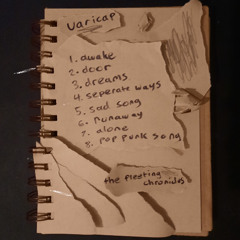 varicap
1. awake
2. door
3. dreams
4. seperate ways
5. sad song
6. runaway
7. alone
8. pop punk song
the fleeting
chronicles